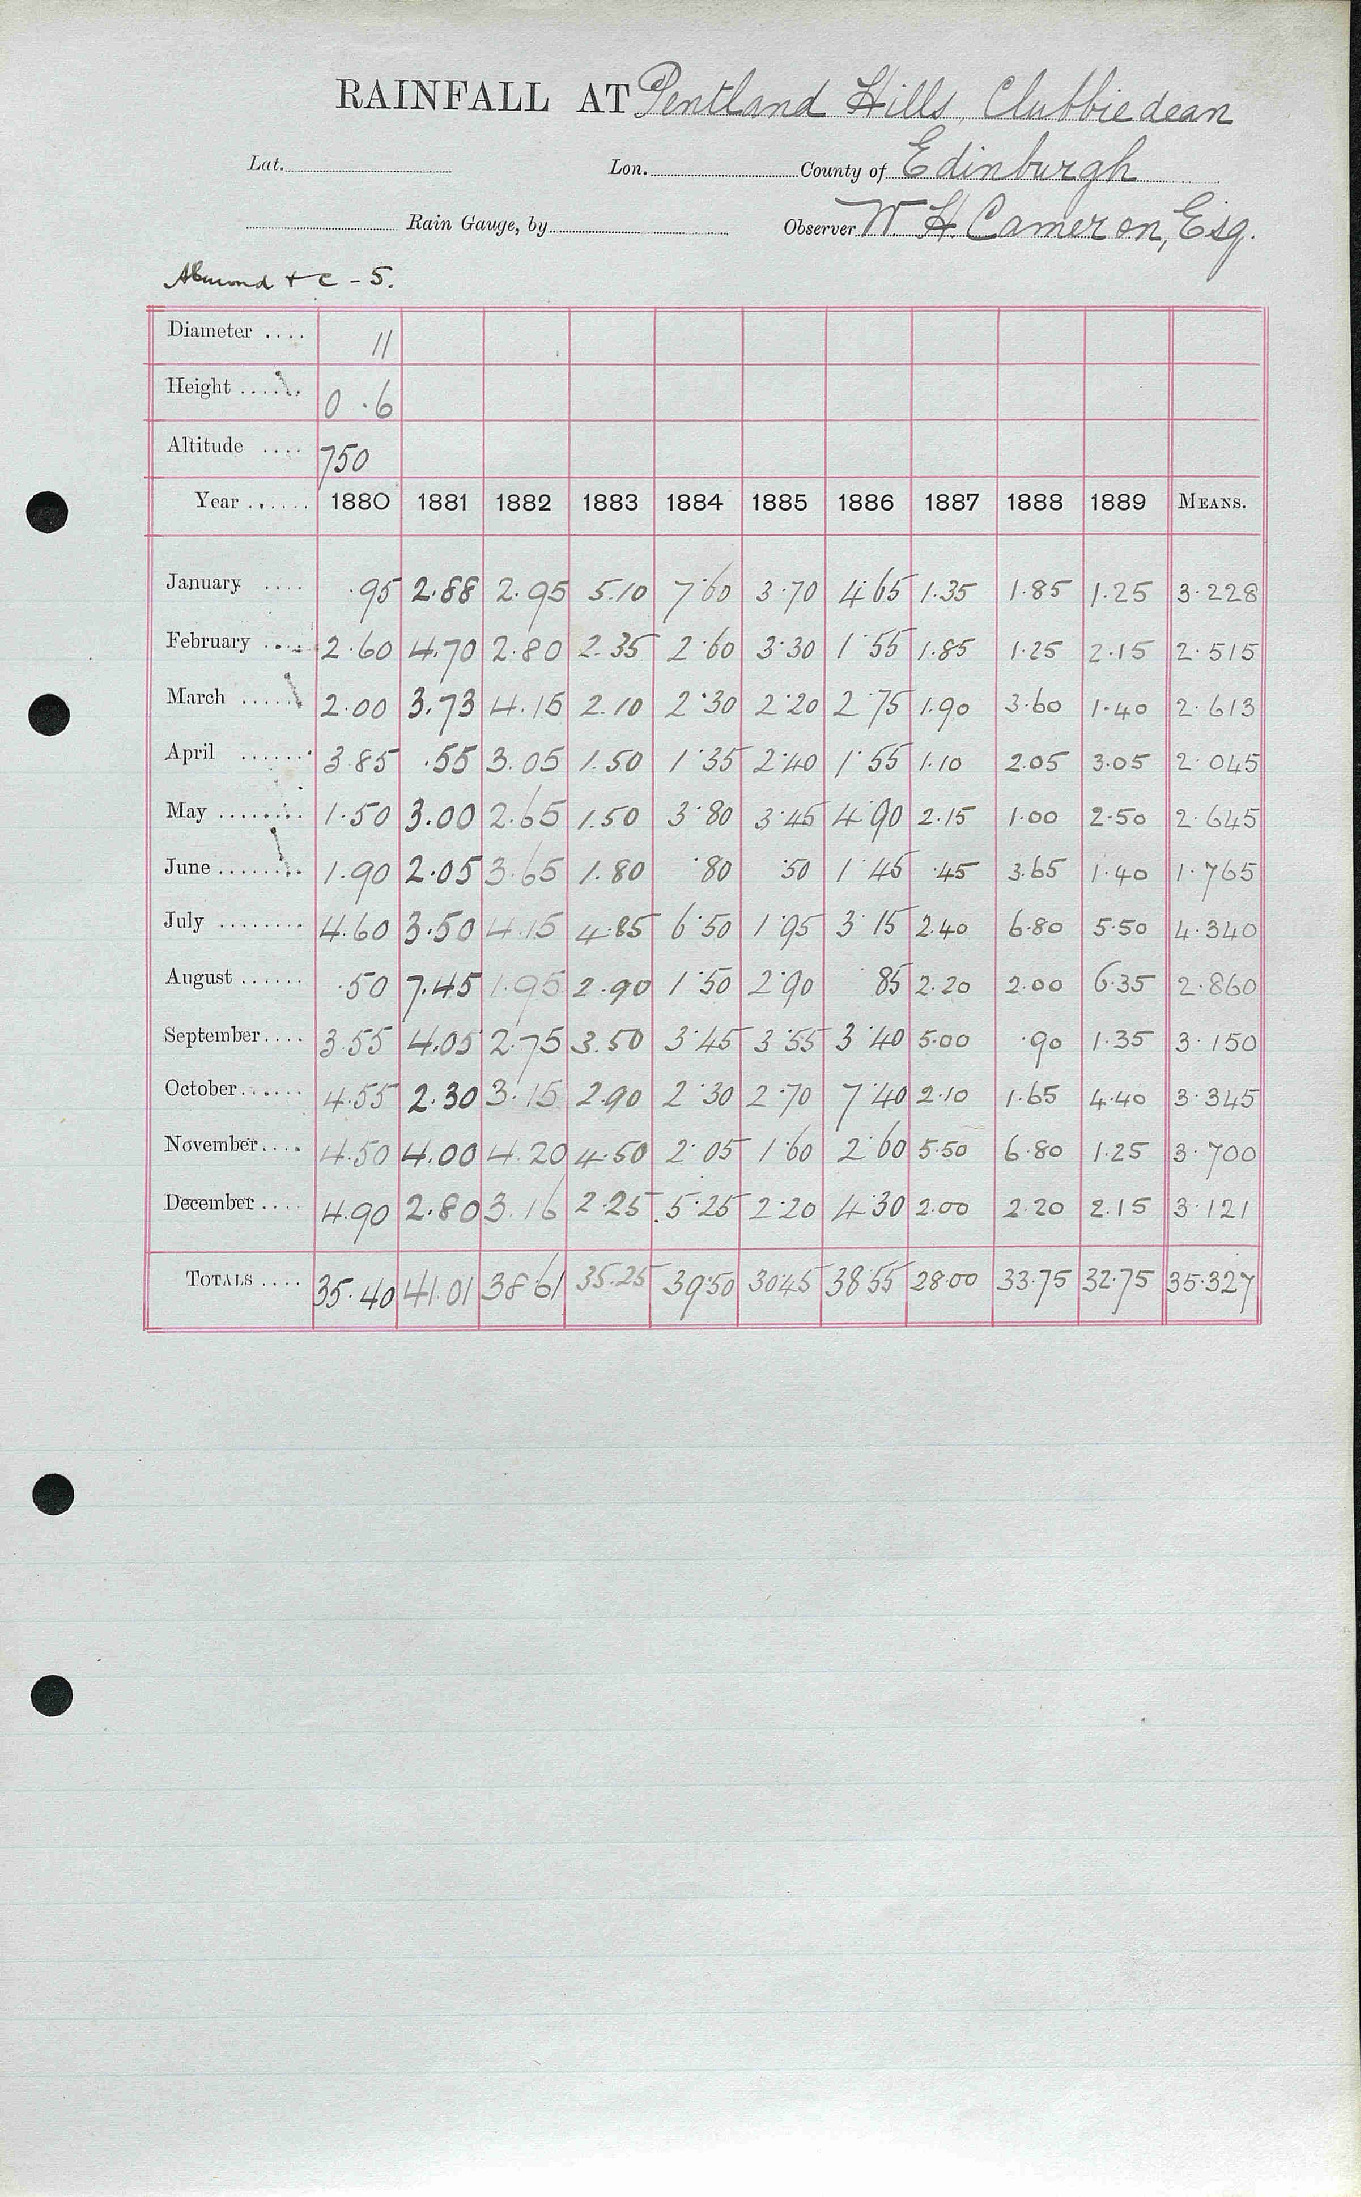 RAINFALL AT Pentland Hills, Clubbiedean
Lat. Lon. County of Edinburgh
Rain Gauge, by Observer W H. Cameron, Esq.
Almond + C - 5.
Diameter .... 11
Height .... 0 .6
Altitude .... 750
Year ...... 1880 1881 1882 1883 1884 1885 1886 1887 1888 1889 MEANS.
January .... .95 2.88 2.95 5.10 7.60 3.70 4.65 1.35 1.85 1.25 3.228
February .... 2.60 4.70 2.80 2.35 2.60 3.30 1.55 1.85 1.25 2.15 2.515
March ..... 2.00 3.73 4.15 2.10 2.30 2.20 2.75 1.90 3.60 1.40 2.613
April ...... 3.85 .55 3.05 1.50 1.35 2.40 1.55 1.10 2.05 3.05 2.045
May ........ 1.50 3.00 2.65 1.50 3.80 3.45 4.90 2.15 1.00 2.50 2.645
June ........ 1.90 2.05 3.65 1.80 .80 .50 1.45 .45 3.65 1.40 1.765
July ........ 4.60 3.50 4.15 4.85 6.50 1.95 3.15 2.40 6.80 5.50 4.340
August ...... .50 7.45 1.95 2.90 1.50 2.90 .85 2.20 2.00 6.35 2.860
September .... 3.55 4.05 2.75 3.50 3.45 3.55 3.40 5.00 .90 1.35 3.150
October ...... 4.55 2.30 3.15 2.90 2.30 2.70 7.40 2.10 1.65 4.40 3.345
November .... 4.50 4.00 4.20 4.50 2.05 1.60 2.60 5.50 6.80 1.25 3.700
December .... 4.90 2.80 3.16 2.25 5.25 2.20 4.30 2.00 2.20 2.15 3.121
TOTALS .... 35.40 41.01 38.61 35.25 39.50 30.45 38.55 28.00 33.75 32.75 35.327